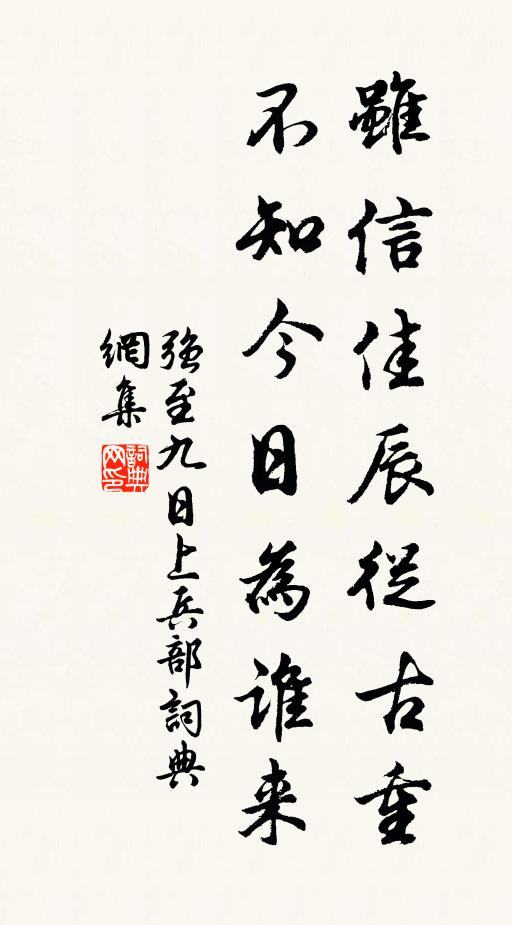 雖信佳辰從古重
不知今日為誰来
強至九日上兵部詞典
網集
詞典網印